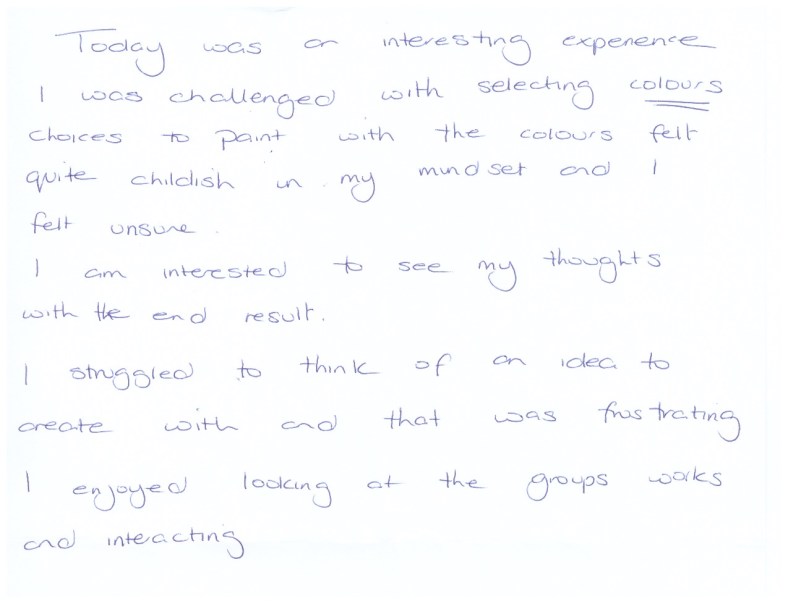 Today was an interesting experience
I was challenged with selecting colours
choices to paint with the colours felt
quite childish in my mindset and I
felt unsure.
I am interested to see my thoughts
with the end result.
I struggled to think of an idea to
create with and that was frustrating
I enjoyed looking at the groups works
and interacting